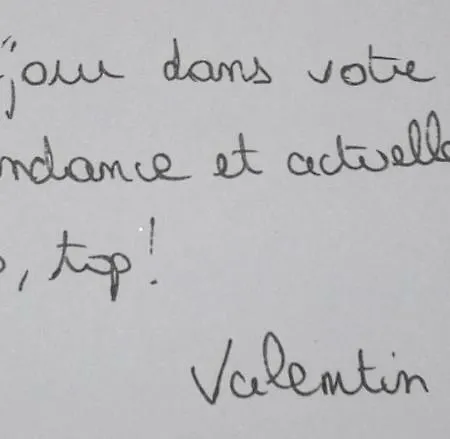 jour dans votre
ndance et actuelle
, top!
Valentin